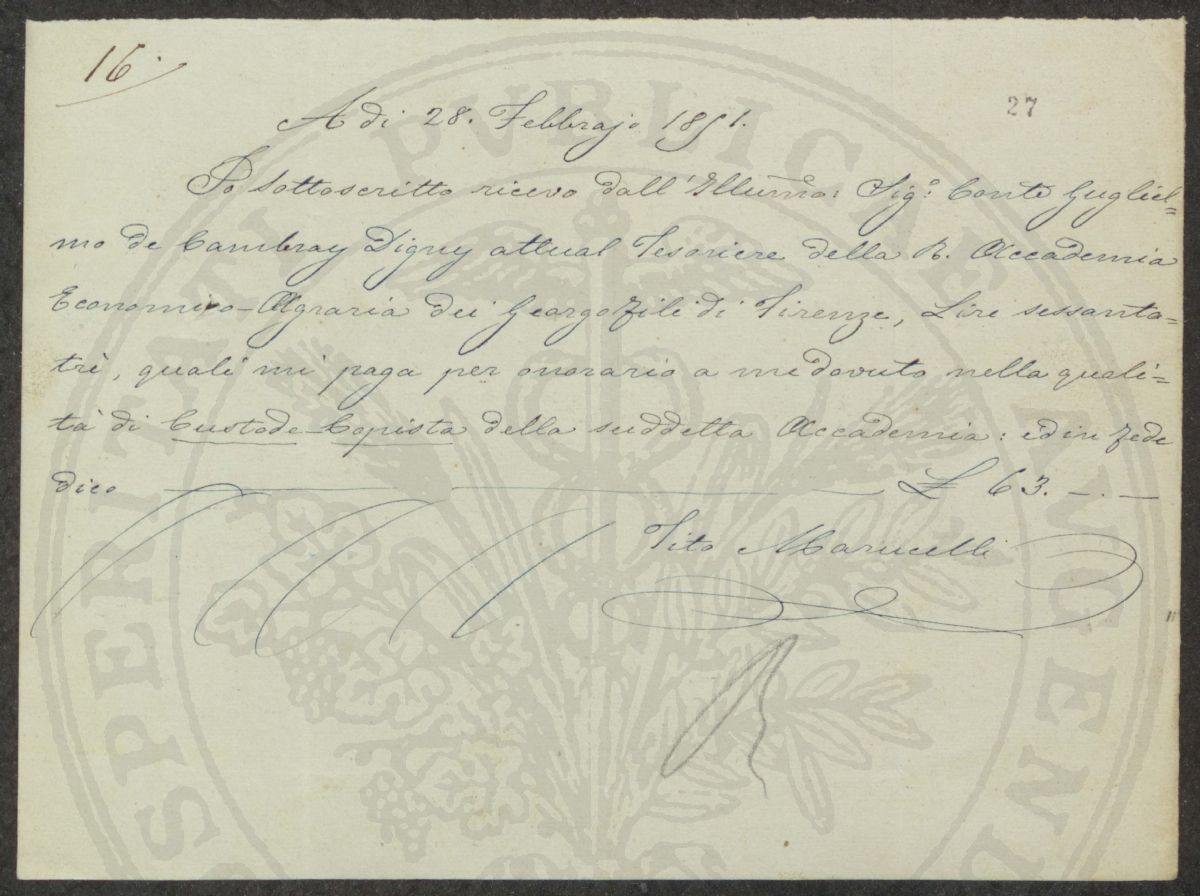 16.
27
A dì 28. Febbrajo 1851.
Io sottoscritto ricevo dall'Illumo: Sigr: Conte Gugliel=
mo de Cambray Digny attual Tesoriere della R. Accademia
Economico-Agraria dei Georgofili di Firenze, Lire sessanta=
trè, quali mi paga per onorario a me dovuto nella quali=
tà di Custode-Copista della suddetta Accademia: ed in fede
dico ——— £ 63. -.-
Tito Marucelli
PROSPERITATI PUBLICAE AUGENDAE